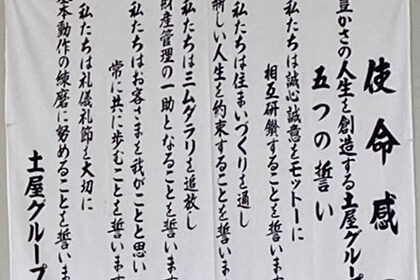 使命感
豊かさの人生を創造する土屋グループ
五つの誓い
私たちは誠心誠意をモットーに
相互研鑽することを誓いま
私たちは住まいづくりを通し
新しい人生を約束することを誓いま
私たちは三ムダラリを追放し
財産管理の一助となることを誓いま
私たちはお客さまを我がことと思い
常に共に歩むことを誓いま
私たちは礼儀礼節を大切に
基本動作の練磨に努めることを誓いま
土屋グループ